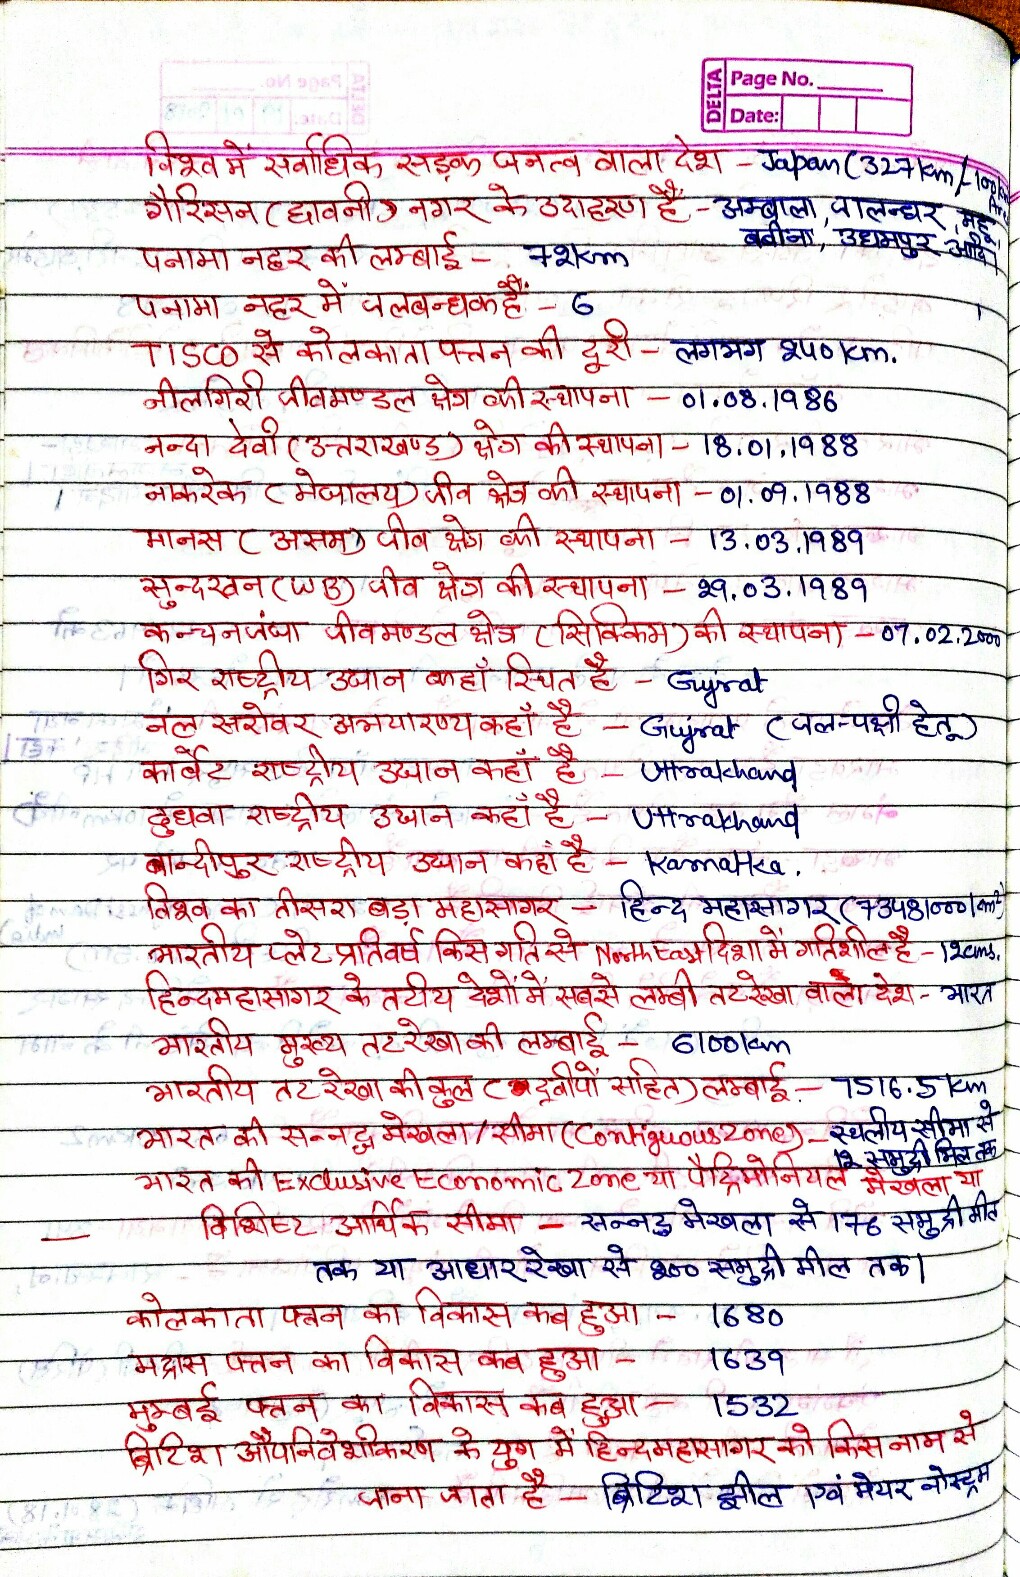 DELTA
Page No.
Date:
विश्व में सर्वाधिक सड़क घनत्व वाला देश - Japan (327 km/100 km
गैरिसन (छावनी) नगर के उदाहरण हैं - अम्बाला, जालन्धर, महू,
बबीना, उधमपुर आदि।
पनामा नहर की लम्बाई - 72 km
पनामा नहर में जलबन्धक हैं - 6
TISCO से कोलकाता पत्तन की दूरी - लगभग 240 km.
नीलगिरी जीवमण्डल क्षेत्र की स्थापना - 01.08.1986
नन्दा देवी (उत्तराखण्ड) क्षेत्र की स्थापना - 18.01.1988
नाकरेक (मेघालय) जीव क्षेत्र की स्थापना - 01.09.1988
मानस (असम) जीव क्षेत्र की स्थापना - 13.03.1989
सुन्दरवन (WB) जीव क्षेत्र की स्थापना - 29.03.1989
कन्चनजंघा जीवमण्डल क्षेत्र (सिक्किम) की स्थापना - 07.02.2000
गिर राष्ट्रीय उद्यान कहाँ स्थित है - Gujrat
नल सरोवर अभयारण्य कहाँ है - Gujrat (जल-पक्षी हेतू)
कार्बेट राष्ट्रीय उद्यान कहाँ है - Uttrakhand
दुधवा राष्ट्रीय उद्यान कहाँ है - Uttrakhand
बान्दीपुर राष्ट्रीय उद्यान कहाँ है - Karnatka.
विश्व का तीसरा बड़ा महासागर - हिन्द महासागर (73481000 km²)
भारतीय प्लेट प्रतिवर्ष किस गति से North East दिशा में गतिशील है - 12 cms.
हिन्दमहासागर के तटीय देशों में सबसे लम्बी तटरेखा वाला देश - भारत
भारतीय मुख्य तटरेखा की लम्बाई - 6100 km
भारतीय तट रेखा की कुल (द्वीपों सहित) लम्बाई - 7516.5 km
भारत की सन्नद्ध मेखला/सीमा (Contiguous zone) - स्थलीय सीमा से
12 समुद्री मिल तक
भारत की Exclusive Economic Zone या पैट्रिमोनियल मेखला या
विशिष्ट आर्थिक सीमा - सन्नद्ध मेखला से 176 समुद्री मील
तक या आधार रेखा से 200 समुद्री मील तक।
कोलकाता पत्तन का विकास कब हुआ - 1680
मद्रास पत्तन का विकास कब हुआ - 1639
मुम्बई पत्तन का विकास कब हुआ - 1532
ब्रिटिश औपनिवेशीकरण के युग में हिन्दमहासागर को किस नाम से
जाना जाता है - ब्रिटिश झील एवं मेयर नोस्ट्रम